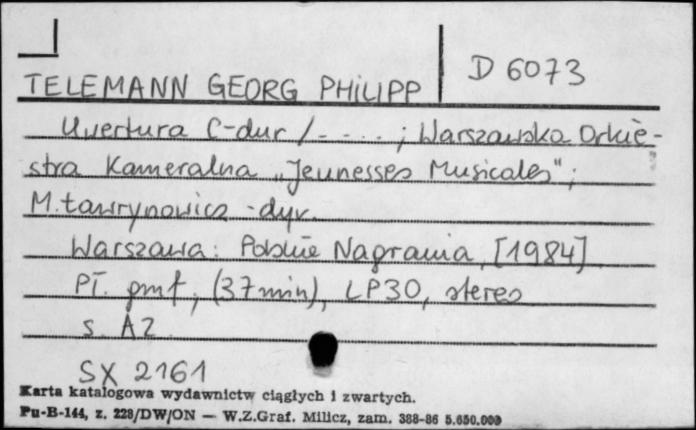 D 6073
TELEMANN GEORG PHILIPP
Uwertura C-dur /- - - - ; Warszawska Orkie-
stra Kameralna „Jeunesses Musicales";
M. Ławrynowicz - dyr.
Warszawa: Polskie Nagrania, [1984]
Pł. gmf, (37 min), LP30, stereo
s. A2
SX 2161
Karta katalogowa wydawnictw ciągłych i zwartych.
Pu-B-144, z. 228/DW/ON — W.Z.Graf. Milicz, zam. 388-86 5.650.000